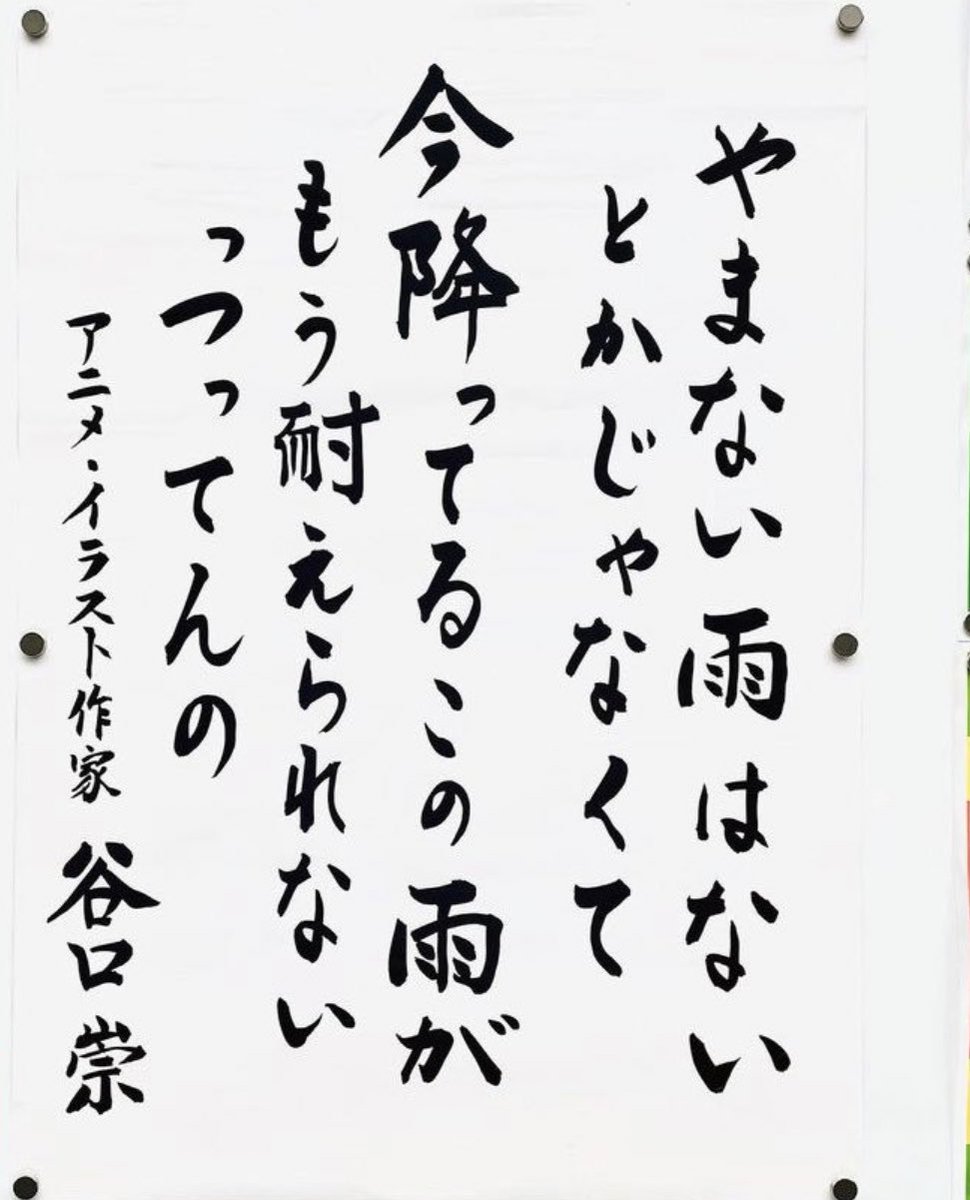 やまない雨はない
とかじゃなくて
今降ってるこの雨が
もう耐えられない
っつってんの
アニメ・イラスト作家 谷口崇